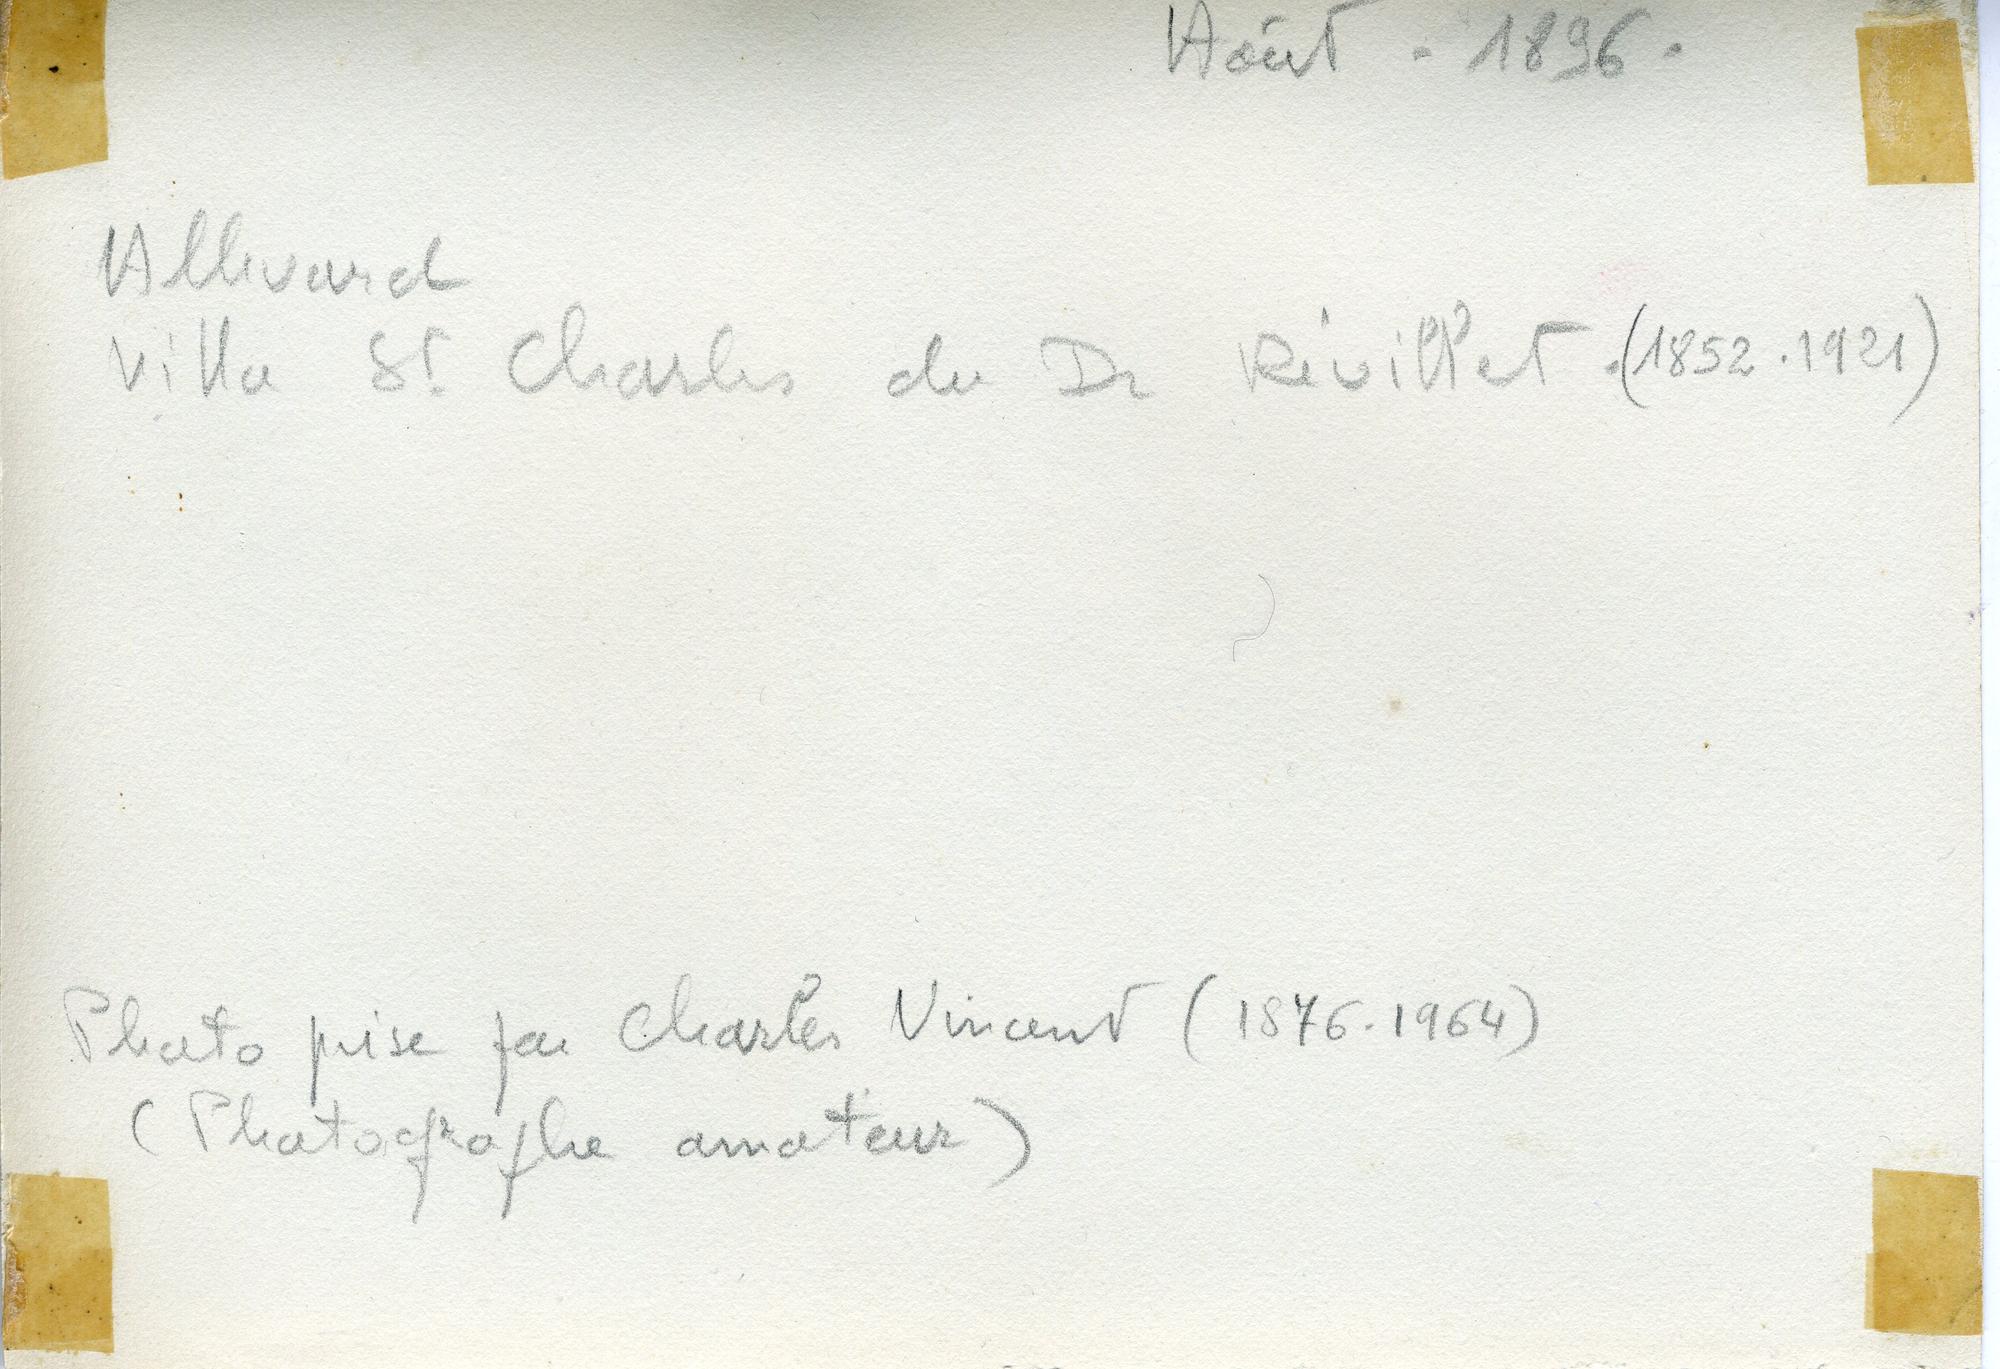 Août - 1896.
Allevard
Villa St Charles du Dr Révillet . (1852.1921)
Photo prise par Charles Vincent (1876.1964)
(Photographe amateur)